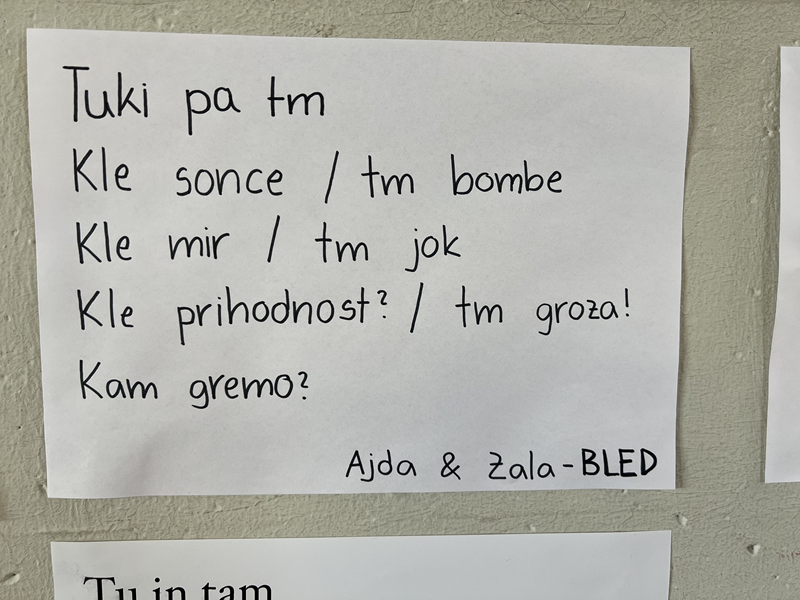 Tuki pa tm
Kle sonce / tm bombe
Kle mir / tm jok
Kle prihodnost? / tm groza!
Kam gremo?
Ajda & Zala - BLED
Tu in tam